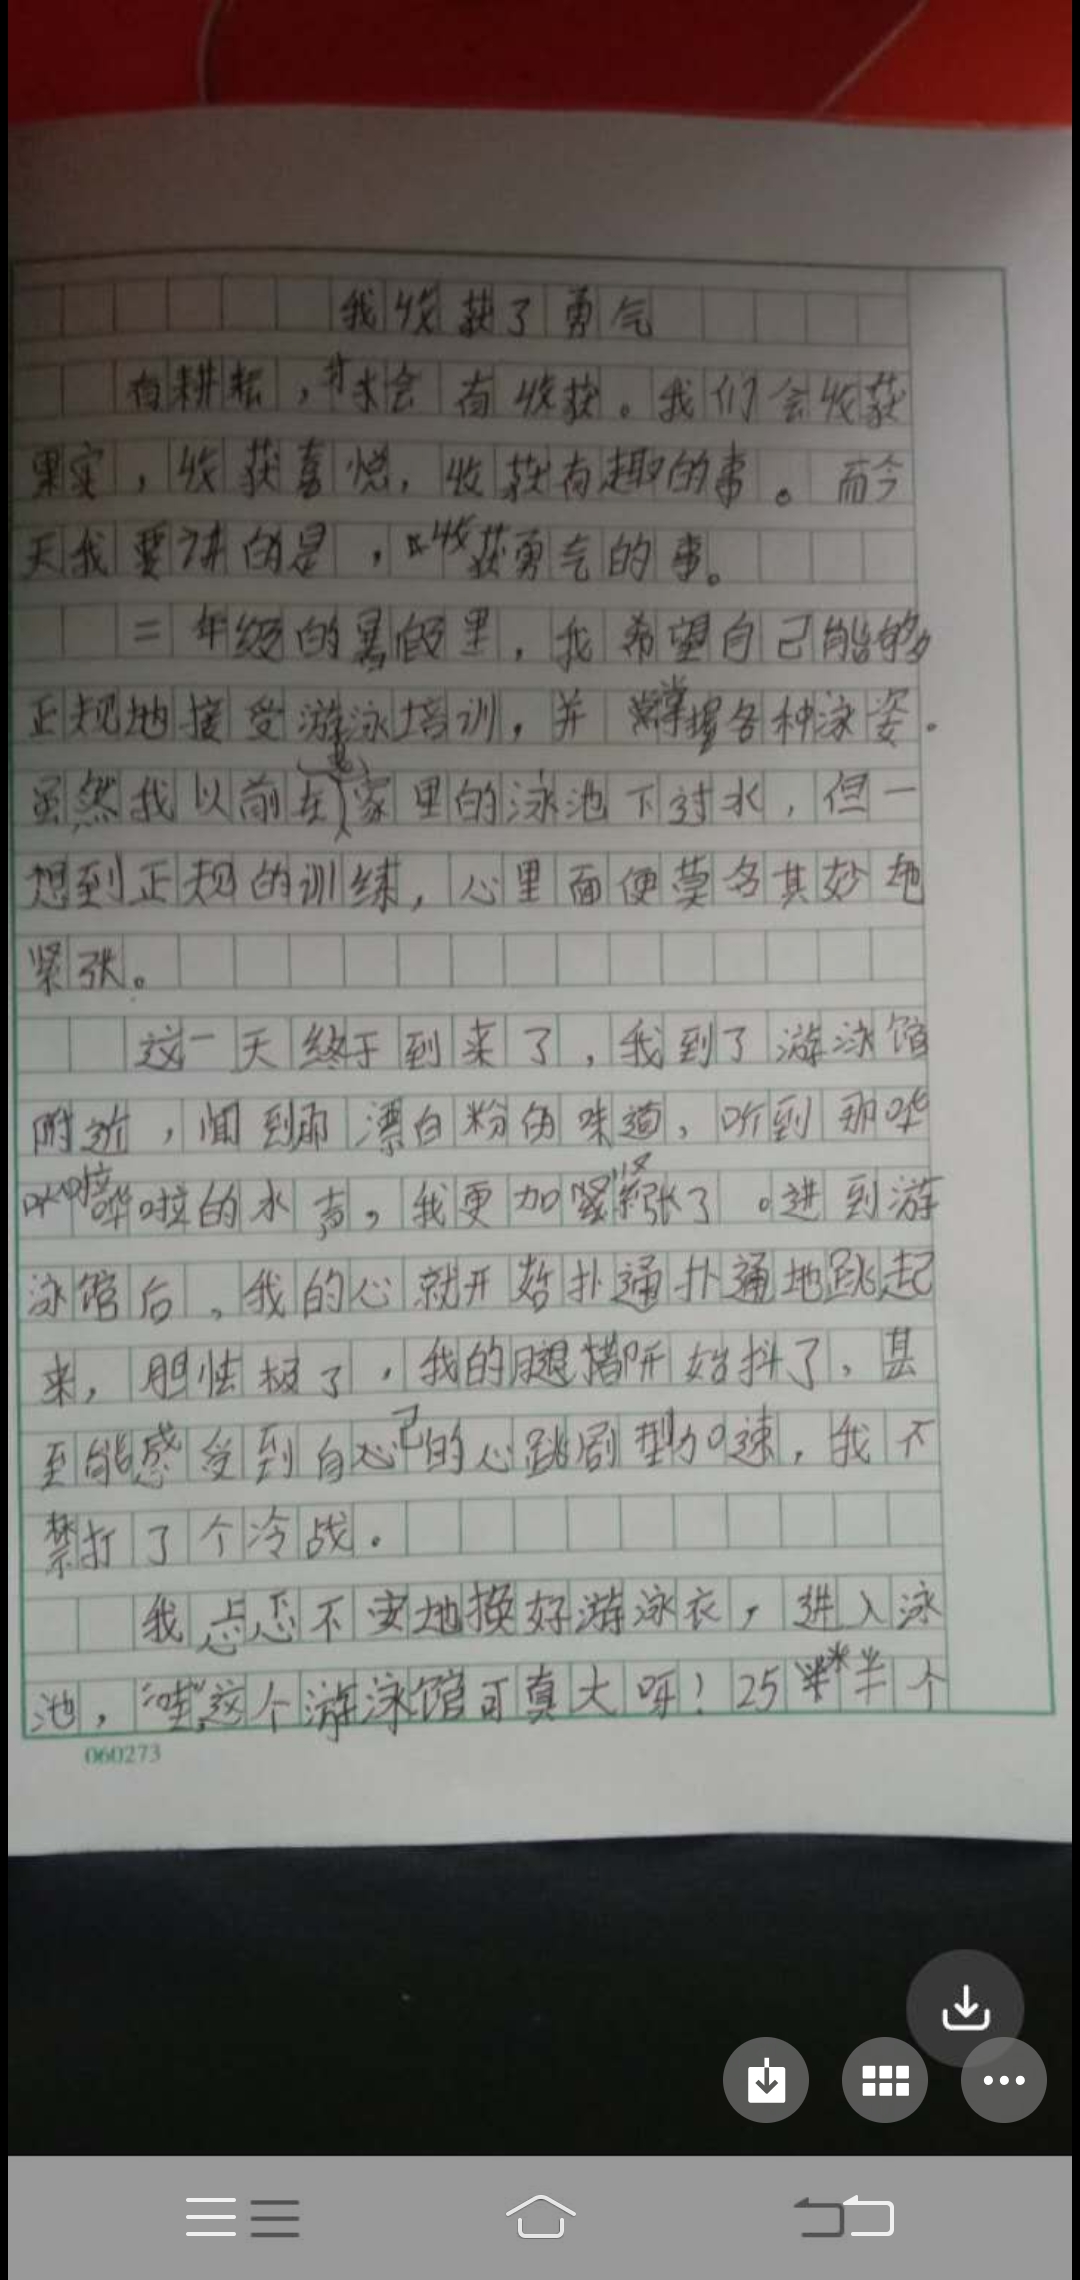 我收获了勇气
有耕耘，才会有收获。我们会收获
果实，收获喜悦，收获有趣的事。而今
天我要讲的是，收获勇气的事。
二年级的暑假里，我希望自己能够
正规地接受游泳培训，并掌握各种泳姿。
虽然我以前在家里的泳池下过水，但一
想到正规的训练，心里面便莫名其妙地
紧张。
这一天终于到来了，我到了游泳馆
附近，闻到那漂白粉的味道，听到那哗
啦哗啦的水声，我更加紧张了。进到游
泳馆后，我的心就开始扑通扑通地跳起
来，胆怯极了，我的腿都开始抖了，甚
至能感受到自己的心跳剧烈加速，我不
禁打了个冷战。
我忐忑不安地换好游泳衣，进入泳
池，“哇”，这个游泳馆可真大呀！25米半个
060273